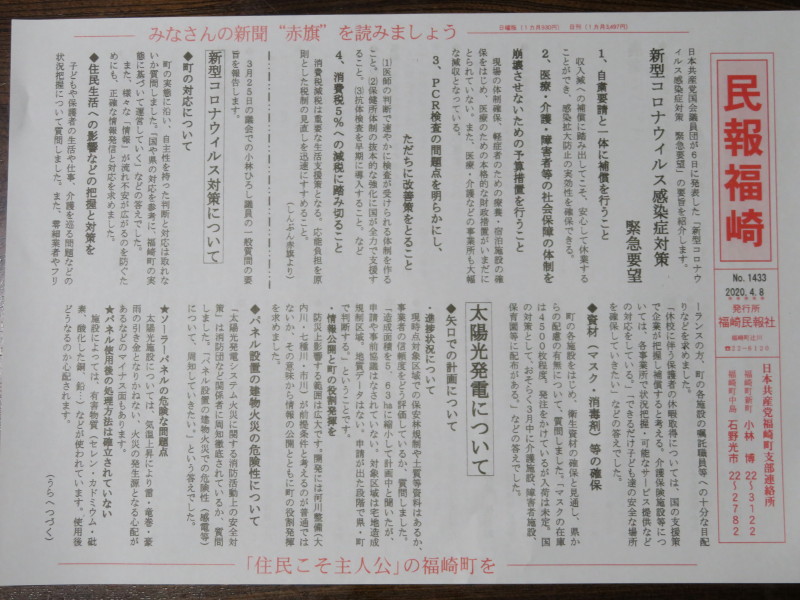 みなさんの新聞“赤旗”を読みましょう
日曜版(1カ月930円) 日刊(1カ月3,497円)
民報福崎
No. 1433
2020. 4. 8
発行所
福崎民報社
福崎町辻川
☎22-6120
日本共産党福崎町支部連絡所
福崎町新町 小林 博 22~3122
福崎町中島 石野光市 22~2782
日本共産党国会議員団が6日に発表した「新型コロナウ
イルス感染症対策 緊急要望」の要旨を紹介します。
新型コロナウイルス感染症対策
緊急要望
1、自粛要請と一体に補償を行うこと
収入減への補償に踏み出してこそ、安心して休業する
ことができ、感染拡大防止の実効性を確保できる。
2、医療・介護・障害者等の社会保障の体制を
崩壊させないための予算措置を行うこと
現場の体制確保、軽症者のための療養・宿泊施設の確
保をはじめ、医療のための本格的な財政措置がいまだに
とられていない。また、医療・介護などの事業所も大幅
な減収となっている。
3、PCR検査の問題点を明らかにし、
ただちに改善策をとること
①医師の判断で速やかに検査が受けられる体制を作る
こと、②保健所体制の抜本的な強化に国が全力で支援す
ること、③抗体検査を早期に導入すること、など
4、消費税5%への減税に踏み切ること
消費税減税は重要な生活支援策となる。応能負担を原
則とした税制の見直しを迅速にすすめること。
(しんぶん赤旗より)
3月25日の議会での小林ひろし議員の一般質問の要
旨を報告します。
新型コロナウイルス対策について
◆町の対応について
町の実態に沿い、自主性を持った判断と対応は取れな
いか質問しました。「国や県の対応を参考に、福崎町の実
態に基づいて運営していく」などの答えでした。
また、様々な「情報」が流れ不安が広がるのを防ぐた
めにも、正確な情報発信と対応を求めました。
◆住民生活への影響などの把握と対策を
子どもや保護者の生活や仕事、介護を巡る問題などの
状況把握について質問しました。また、零細業者やフリ
ーランスの方、町の各施設の嘱託職員等への十分な目配
りなどを求めました。
「休校に伴う保護者の休暇取得については、国の支援策
で企業が把握し補償すると考える。介護保険施設等につ
いては、各事業所で状況把握・可能なサービス提供など
の対応をしている。」「できるだけ子ども達の安全な場所
を確保していきたい」などの答えでした。
◆資材(マスク・消毒剤)等の確保
町の各施設をはじめ、衛生資材の確保と見通し、県か
らの配慮の有無について、質問しました。「マスクの在庫
は4500枚程度。発注をかけているが入荷は未定。国
の対策として、おそらく3月中に介護施設、障害者施設、
保育園等に配布がある。」などの答えでした。
太陽光発電について
◆矢口での計画について
・進捗状況について
現時点対象区域での保安林規制や土質等資料はあるか、
事業者の信頼度をどう評価しているか、質問しました。
「造成面積を5.63haに縮小して計画中と聞いたが、
申請や事前協議はなされていない。対象区域は宅地造成
規制区域、地質データはない。申請が出た段階で県・町
で判断する。」ということです。
・情報公開と町の役割発揮を
防災上影響する範囲は広大です。開発には河川整備(大
内川・七種川・市川)が前提条件と考えるのが普通では
ないか、その意味から情報の公開とともに町の役割発揮
を求めました。
◆パネル設置の建物火災の危険性について
「太陽光発電システム火災に関する消防活動上の安全対
策」は消防団など関係者に周知徹底されているか、質問
しました。「パネル設置の建物火災での危険性(感電等)
について、周知していきたい。」という答えでした。
★ソーラーパネルの危険な問題点
太陽光施設については、気温上昇により雷・竜巻・豪
雨の引き金となりかねない、火災の発生源となる心配が
あるなどのマイナス面もあります。
★パネル使用後の処理方法は確立されていない
施設によっては、有害物質(セレン・カドミウム・砒
素、酸化した銅、鉛…)などが使われています。使用後
どうなるのか心配されます。
(うらへつづく)
「住民こそ主人公」の福崎町を